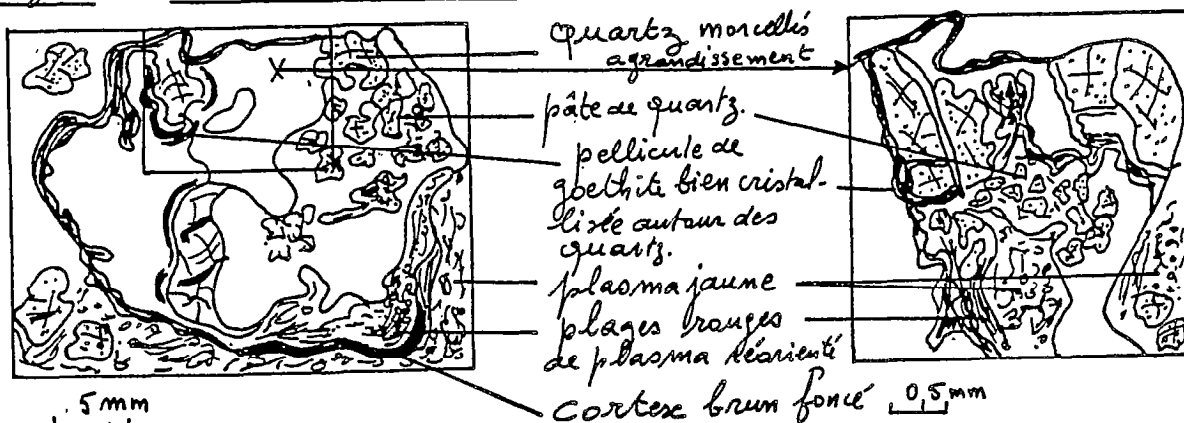 quartz morcelés
agrandissement
X
pâte de quartz.
pellicule de
goethite bien cristal-
lisée autour des
quartz.
plasma jaune
plages rouges
de plasma réorienté
cortex brun foncé
5mm
0,5mm